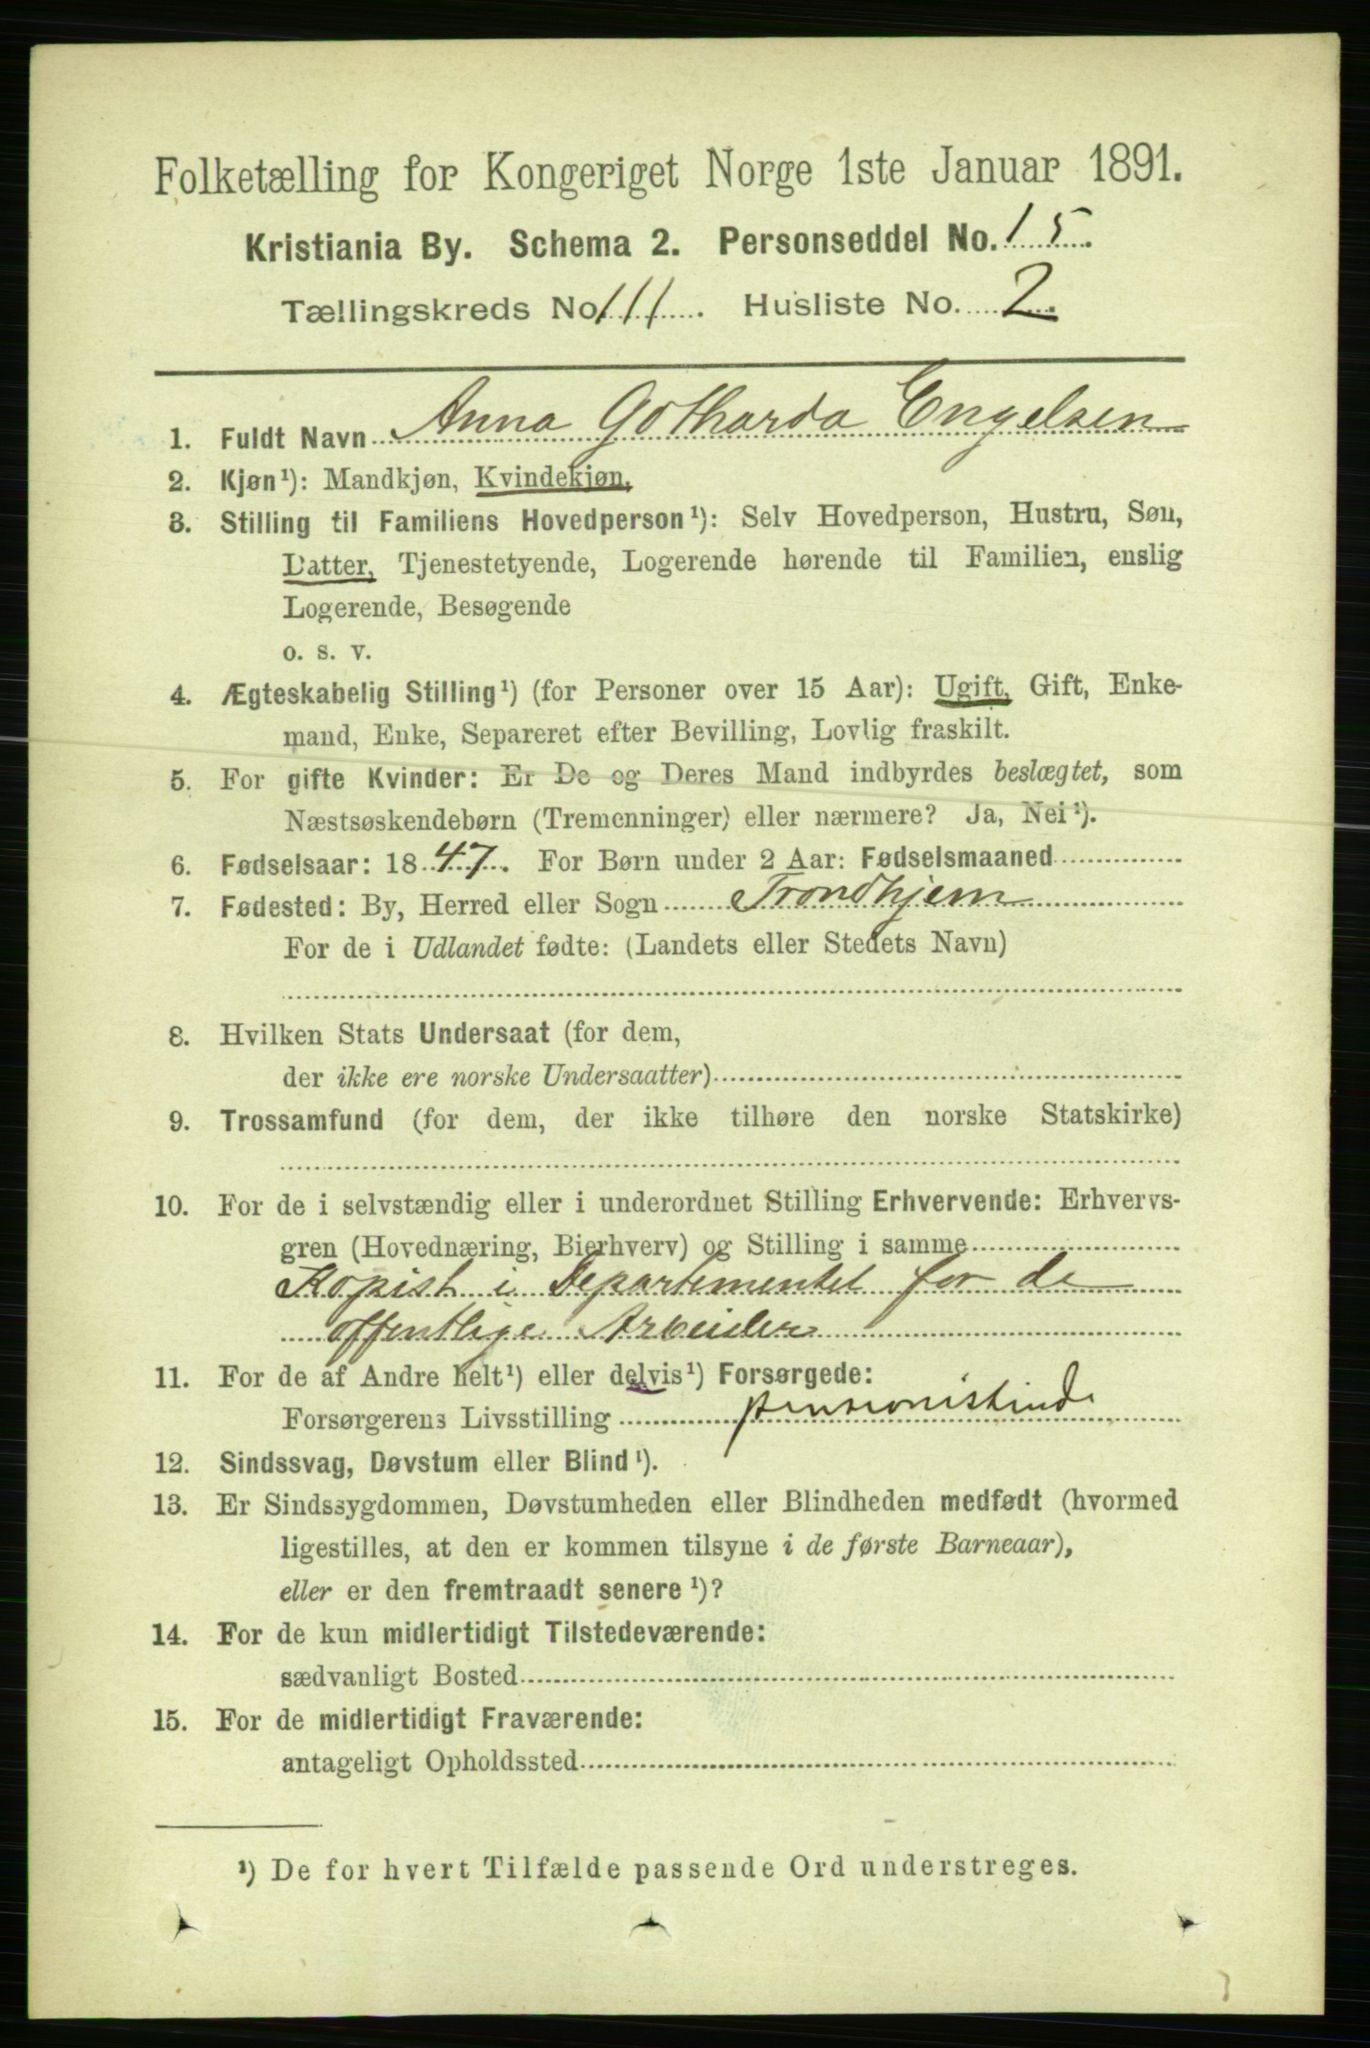 Folketælling for Kongeriget Norge 1ste Januar 1891.
Kristiania By. Schema 2. Personseddel No. 15.
Tællingskreds No 111. Husliste No. 2.
1. Fuldt Navn Anna Gotharda Engelsen
2. Kjøn¹): Mandkjøn, Kvindekjøn.
3. Stilling til Familiens Hovedperson¹): Selv Hovedperson, Hustru, Søn,
Datter, Tjenestetyende, Logerende hørende til Familien, enslig
Logerende, Besøgende
o. s. v.
4. Ægteskabelig Stilling¹) (for Personer over 15 Aar): Ugift, Gift, Enke-
mand, Enke, Separeret efter Bevilling, Lovlig fraskilt.
5. For gifte Kvinder: Er De og Deres Mand indbyrdes beslægtet, som
Næstsøskendebørn (Tremenninger) eller nærmere? Ja, Nei¹).
6. Fødselsaar: 1847. For Børn under 2 Aar: Fødselsmaaned
7. Fødested: By, Herred eller Sogn Trondhjem
For de i Udlandet fødte: (Landets eller Stedets Navn)
8. Hvilken Stats Undersaat (for dem,
der ikke ere norske Undersaatter)
9. Trossamfund (for dem, der ikke tilhøre den norske Statskirke)
10. For de i selvstændig eller i underordnet Stilling Erhvervende: Erhvervs-
gren (Hovednæring, Bierhverv) og Stilling i samme
Kopist i Departementet for de
offentlige Arbeider
11. For de af Andre helt¹) eller delvis¹) Forsørgede:
Forsørgerens Livsstilling pensionistinde
12. Sindssvag, Døvstum eller Blind¹).
13. Er Sindssygdommen, Døvstumheden eller Blindheden medfødt (hvormed
ligestilles, at den er kommen tilsyne i de første Barneaar),
eller er den fremtraadt senere¹)?
14. For de kun midlertidigt Tilstedeværende:
sædvanligt Bosted
15. For de midlertidigt Fraværende:
antageligt Opholdssted
¹) De for hvert Tilfælde passende Ord understreges.